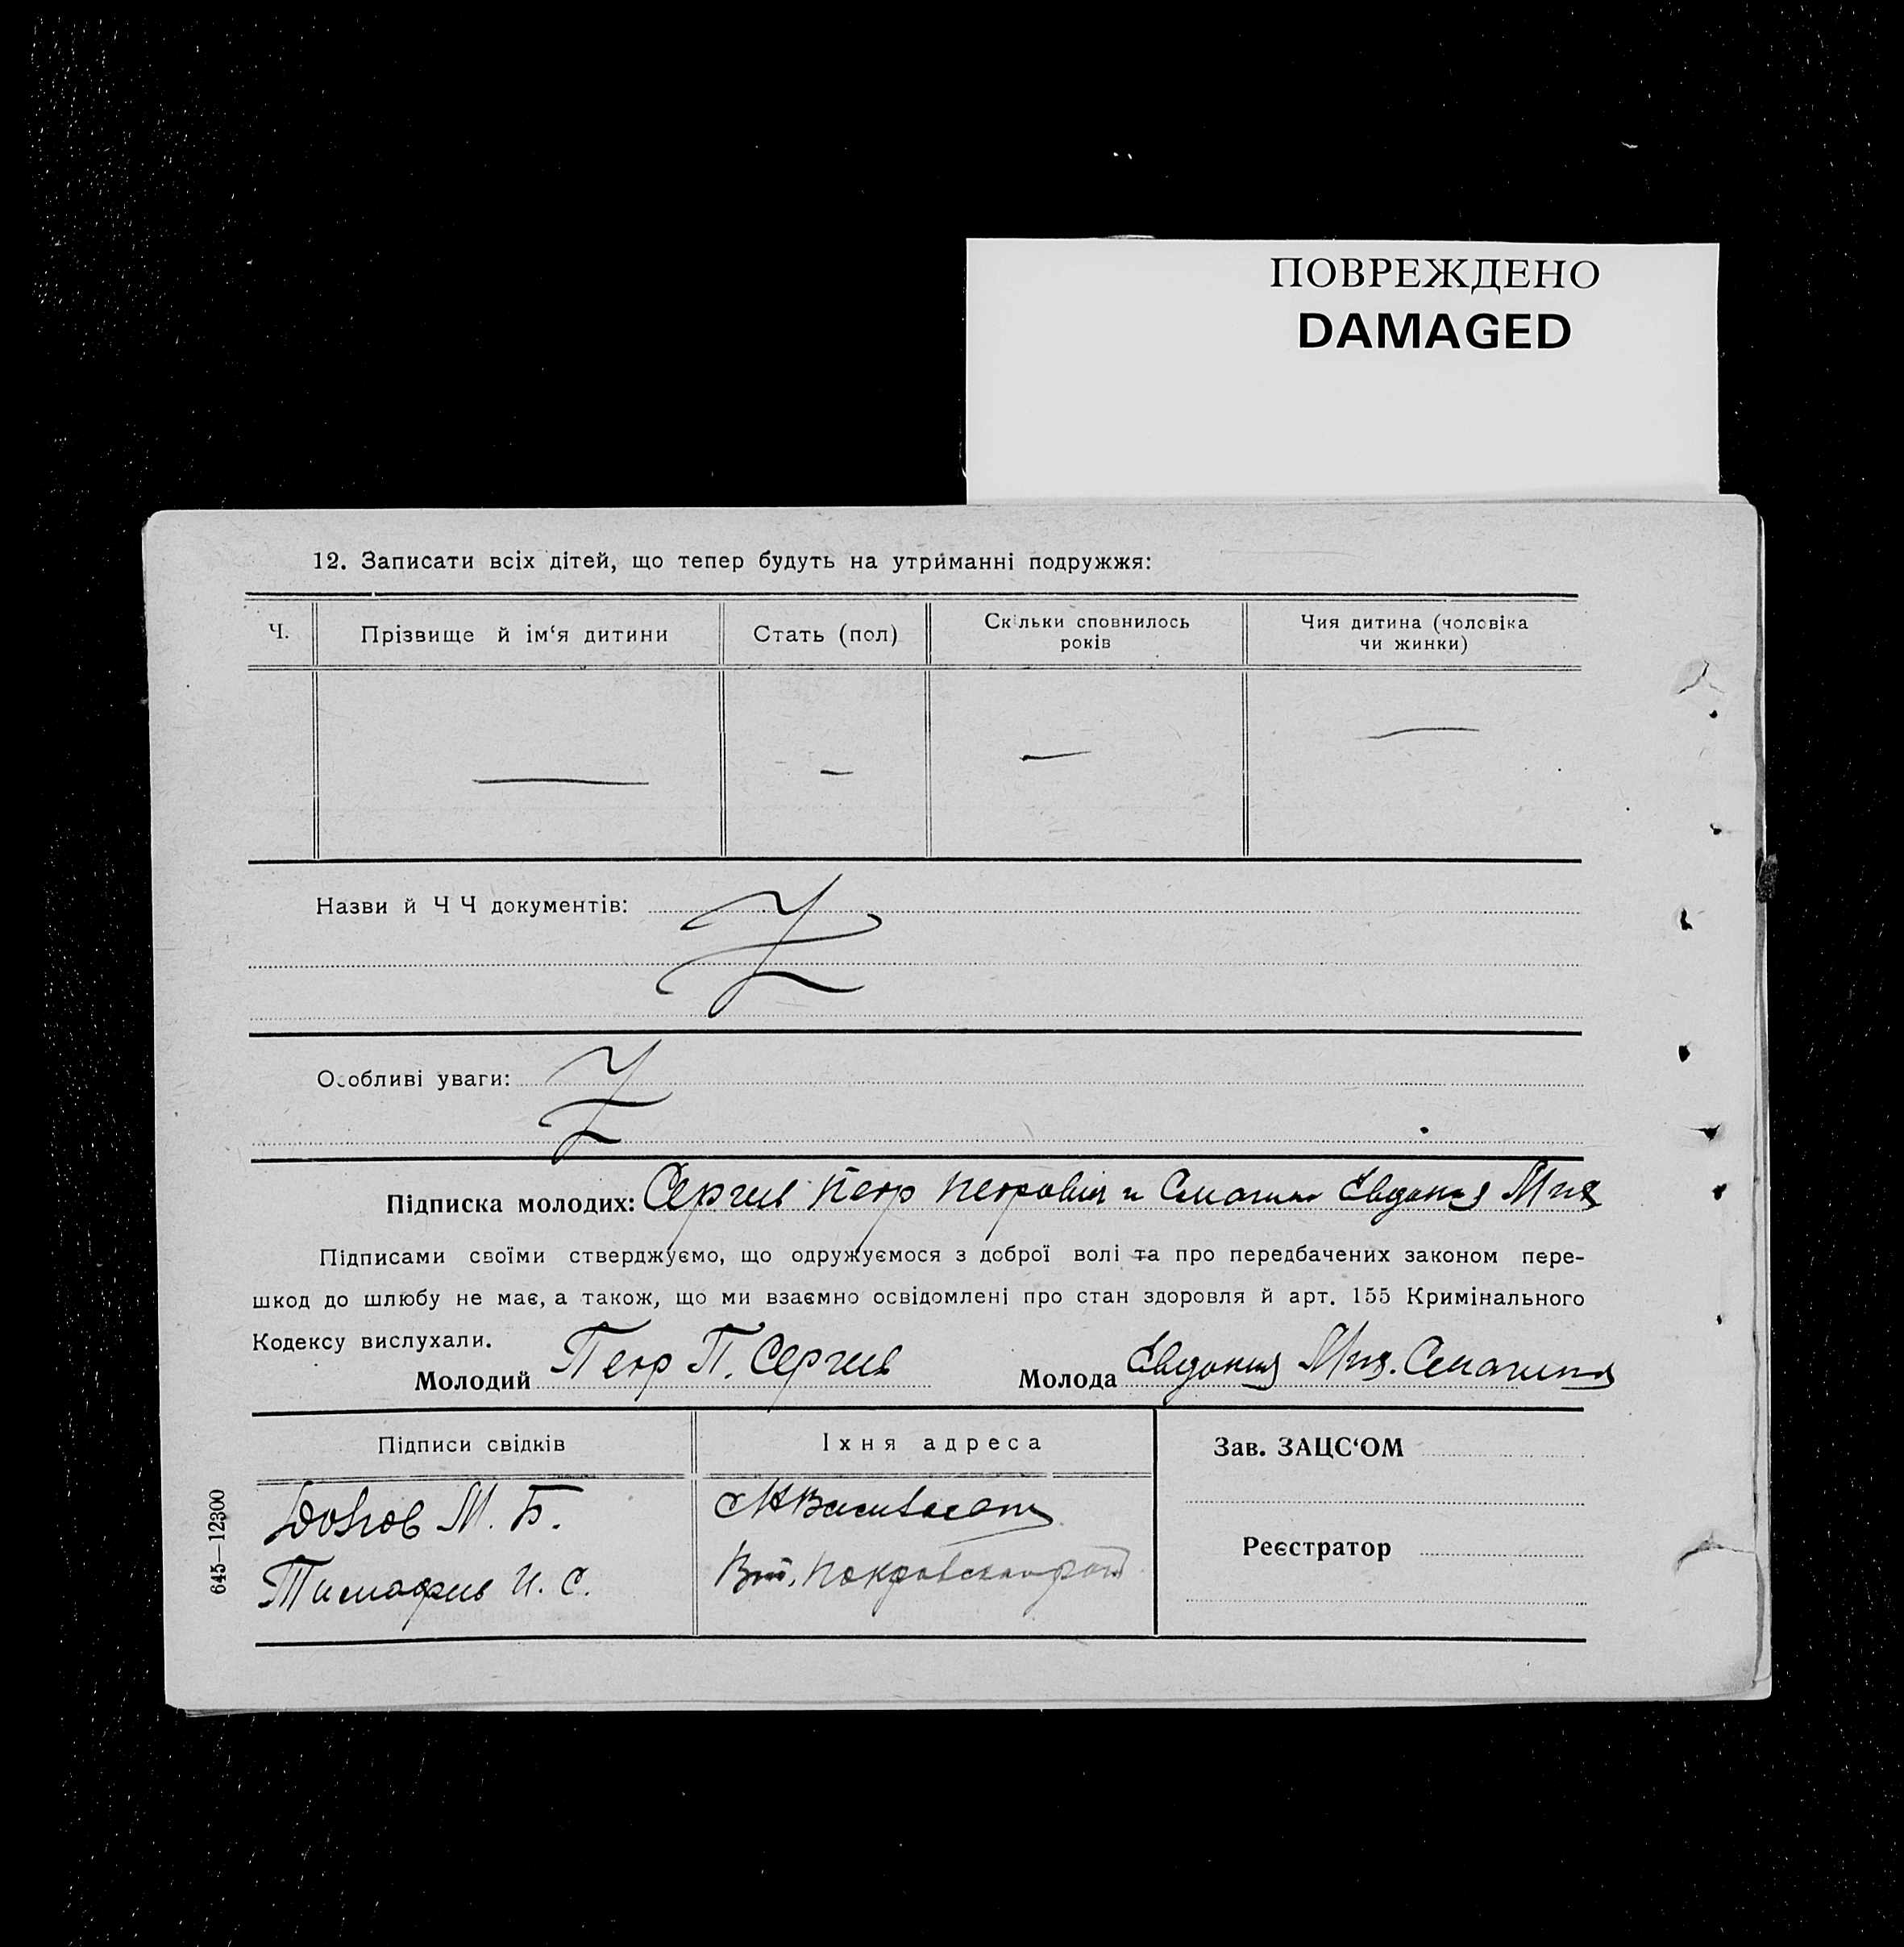 ПОВРЕЖДЕНО
DAMAGED
12. Записати всіх дітей, що тепер будуть на утриманні подружжя:
Ч. Прізвище й ім‘я дитини Стать (пол) Скільки сповнилось років Чия дитина (чоловіка чи жинки)
— — — —
Назви й Ч Ч документів: Z
Особливі уваги: Z
Підписка молодих: Сергив Петр Петрович и Евдокия
Підписами своїми стверджуємо, що одружуємося з доброї волі та про передбачених законом пере-
шкод до шлюбу не має, а також, що ми взаємно освідомлені про стан здоровля й арт. 155 Кримінального
Кодексу вислухали.
Молодий Петр П. Сергив Молода Евдокия
Підписи свідків Їхня адреса Зав. ЗАЦС‘ОМ
М. Б.
Реєстратор
И. С.
645—12300